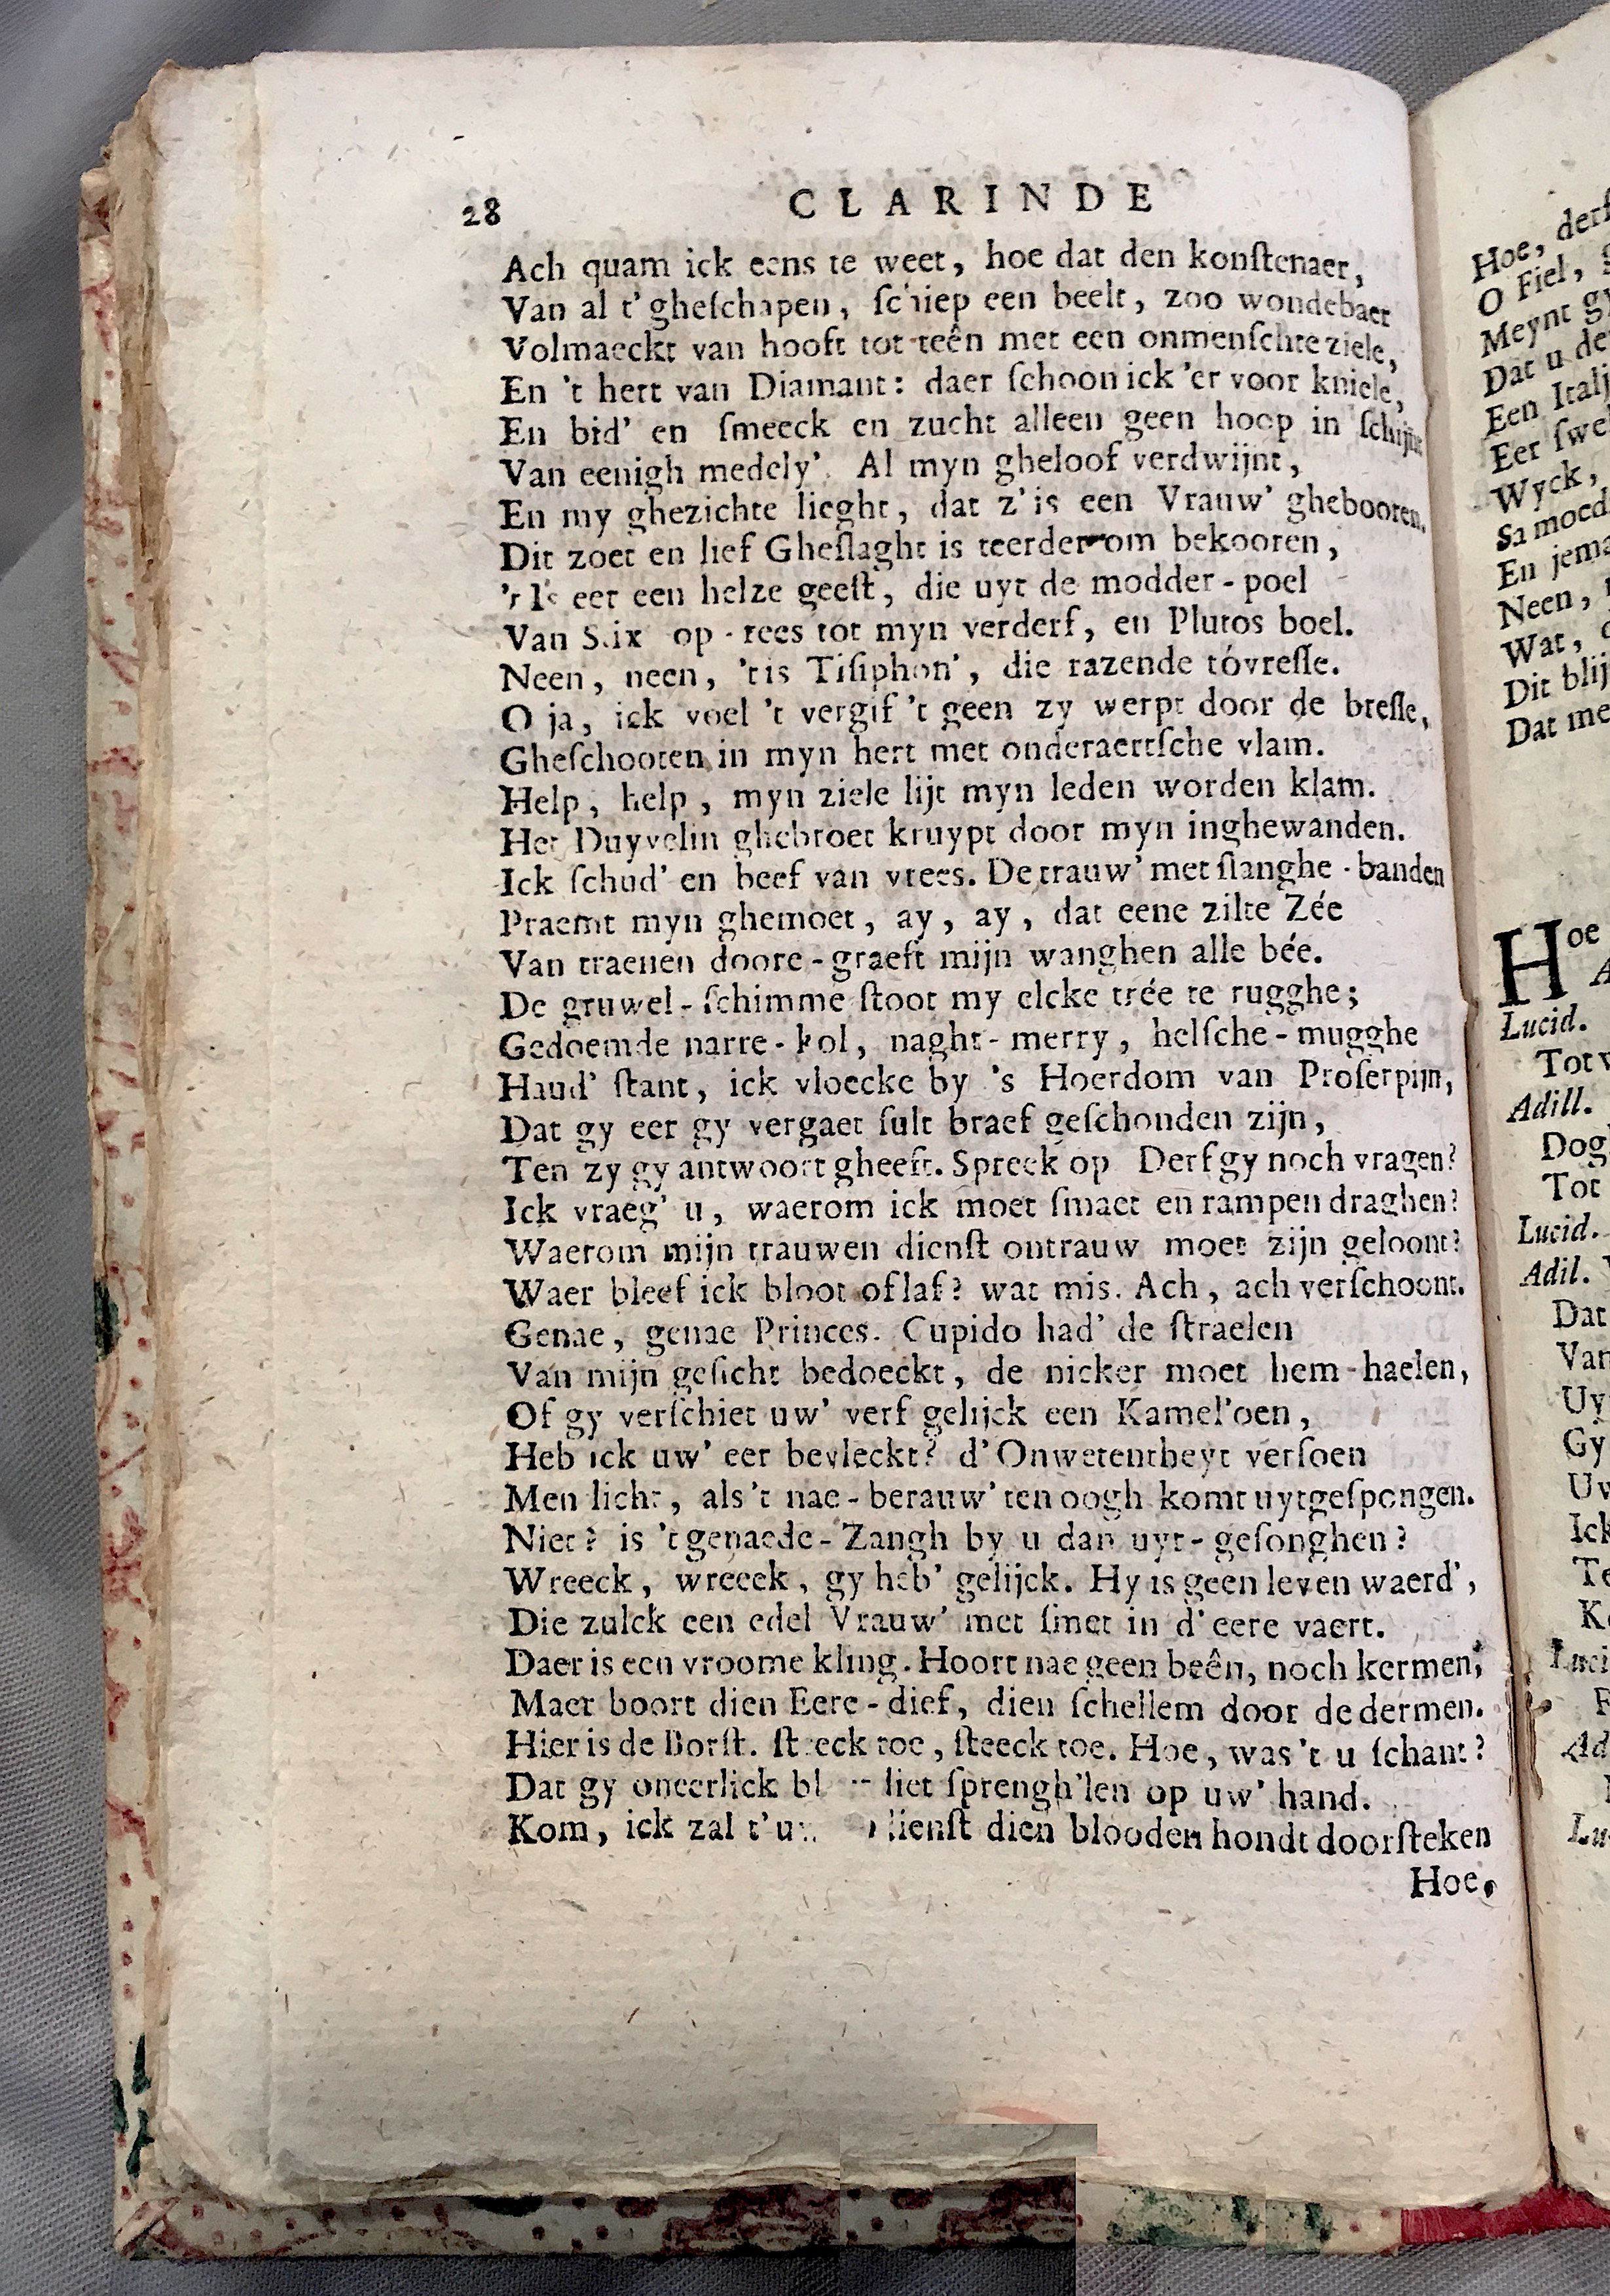 28 CLARINDE
Ach quam ick eens te weet, hoe dat den konſtenaer,
Van al t'gheſchapen, ſchiep een beelt, zoo wondebaer
Volmaeckt van hooft tot teên met een onmenſchte ziele,
En 't hert van Diamant: daer ſchoon ick 'er voor kniele,
En bid' en ſmeeck en zucht alleen geen hoop in ſchijnt
Van eenigh medely'. Al myn gheloof verdwijnt,
En my ghezichte lieght, dat z'is een Vrauw' ghebooren.
Dit zoet en lief Gheſlaght is teerder om bekooren,
't Is eer een helze geeſt, die uyt de modder-poel
Van Stix op-rees tot myn verderf, en Plutos boel.
Neen, neen, 'tis Tiſiphon', die razende tóvreſſe.
O ja, ick voel 't vergif 't geen zy werpt door de breſſe,
Gheſchooten in myn hert met onderaertſche vlam.
Help, help, myn ziele lijt myn leden worden klam.
Het Duyvelin ghebroet kruypt door myn inghewanden.
Ick ſchud' en beef van vrees. De trauw' met ſlanghe-banden
Praemt myn ghemoet, ay, ay, dat eene zilte Zée
Van traenen doore-graeft mijn wanghen alle bée.
De gruwel-ſchimme ſtoot my elcke trée te rugghe;
Gedoemde narre-kol, naght-merry, helſche-mugghe
Haud' ſtant, ick vloecke by 's Hoerdom van Proſerpijn,
Dat gy eer gy vergaet ſult braef geſchonden zijn,
Ten zy gy antwoort gheeft. Spreek op Derf gy noch vragen?
Ick vraeg' u, waerom ick moet ſmaet en rampen draghen?
Waerom mijn trauwen dienſt ontrauw moet zijn geloont?
Waer bleef ick bloot of laf? wat mis. Ach, ach verſchoont.
Genae, genae Princes. Cupido had' de ſtraelen
Van mijn geſicht bedoeckt, de nicker moet hem-haelen,
Of gy verſchiet uw' verf gelijck een Kamel'oen,
Heb ick uw' eer bevleckt? d'Onwetentheyt verſoen
Men licht, als't nae-berauw' ten oogh komt uytgeſpongen.
Niet? is 't genaede-Zangh by u dan uyt-geſonghen?
Wreeck, wreeck, gy heb' gelijck. Hy is geen leven waerd',
Die zulck een edel Vrauw' met ſmet in d'eere vaert.
Daer is een vroome kling. Hoort nae geen beên, noch kermen,
Maer boort dien Eere-dief, dien ſchellem door de dermen.
Hier is de Borſt. ſteeck toe, ſteeck toe. Hoe, was't u ſchant?
Dat gy oneerlick liet ſprengh'len op uw' hand.
Kom, ick zal dienſt dien blooden hondt doorſteken
Hoe,
Hoe,
O Fiel,
Meynt
Dat u
Een
Eer
Wyck,
Sa moed
En
Neen,
Wat,
Dit
Dat
Hoe
Lucid.
Tot
Adill.
Tot
Lucid.
Adil.
Dat
Gy